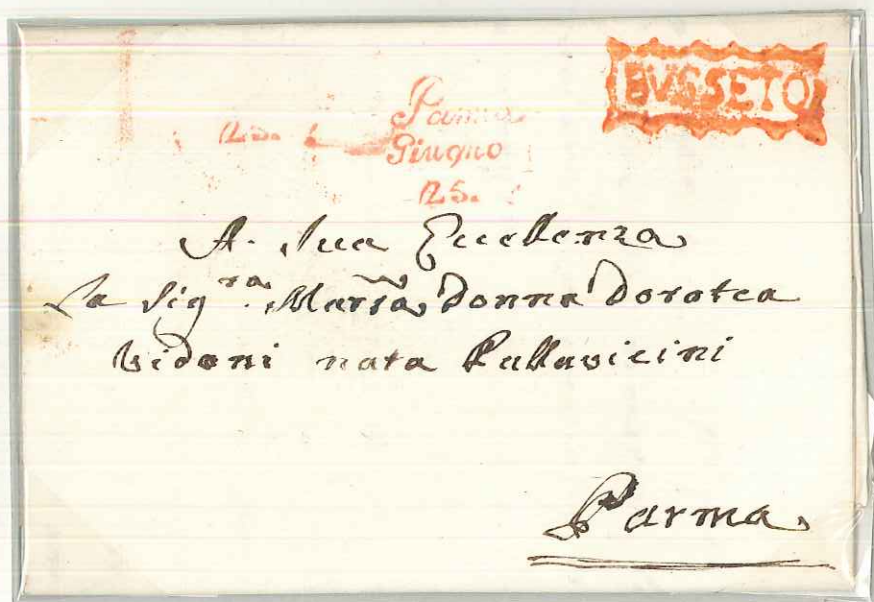 BVGSETO
Parma
Giugno
25.
A. Sua Eccellenza
La Sig.ra Marsa Donna Dorotea
Vidoni nata Pallavicini
Parma